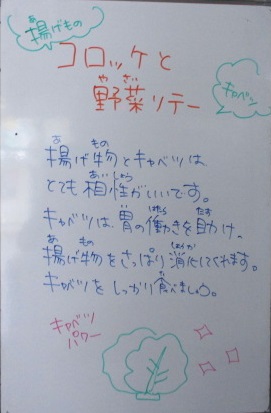 揚げもの
コロッケと
野菜ソテー
キャベツ
揚げ物とキャベツは
とても相性がいいです。
キャベツは、胃の働きを助け、
揚げ物をさっぱり消化してくれます。
キャベツをしっかり食べましょう。
キャベツ
パワー